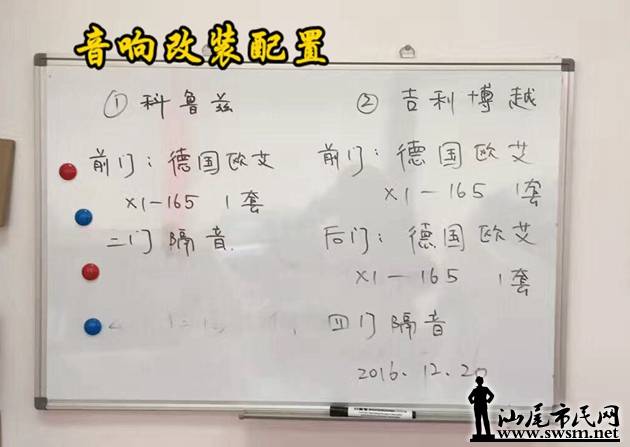 音响改装配置
① 科鲁兹
前门：德国欧艾
X1-165 1套
二门隔音.
② 吉利博越
前门：德国欧艾
X1-165 1套
后门：德国欧艾
X1-165 1套
四门隔音
2016.12.20
汕尾市民网
www.swsm.net